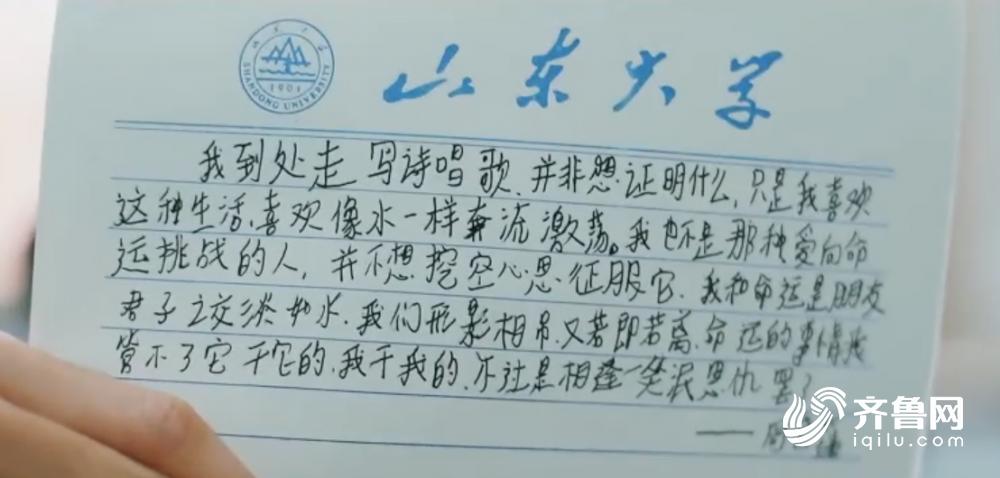 山东大学
SHANDONG UNIVERSITY
1901
我到处走 写诗唱歌、并非想证明什么,只是我喜欢
这种生活、喜欢像水一样奔流激荡。我也不是那种爱向命
运挑战的人,并不想挖空心思征服它、我和命运是朋友
君子之交淡如水、我们形影相吊、又若即若离、命运的事情我
管不了它干它的、我干我的、不过是相逢一笑泯恩仇罢了
——周
齐鲁网
iqilu.com